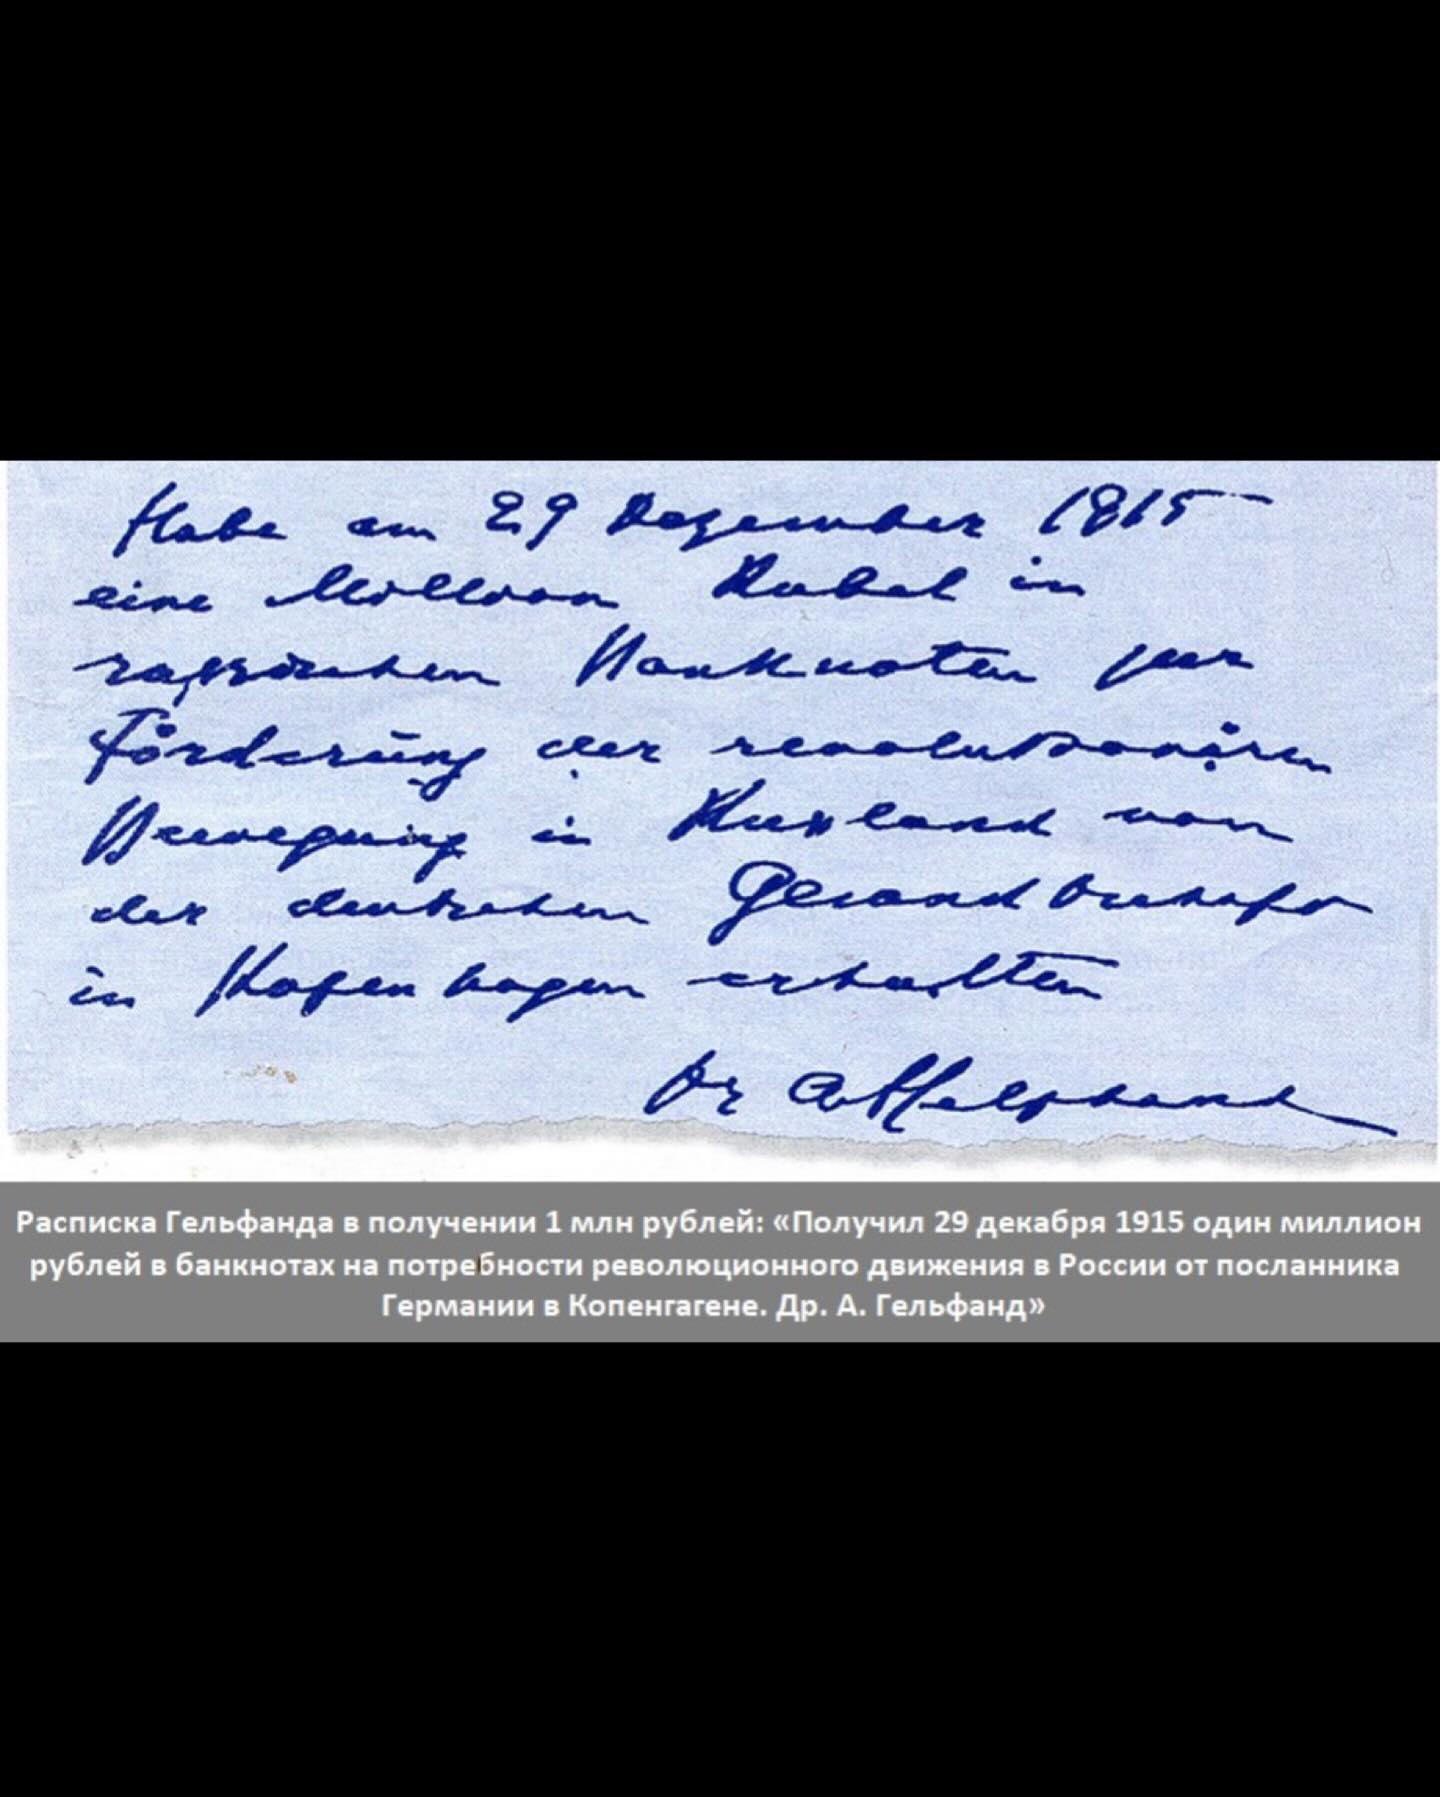 Habe am 29 Dezember 1915
eine Million Rubel in
russischen Banknoten zur
Förderung der revolutionären
Bewegung in Russland von
der deutschen Gesandtschaft
in Kopenhagen erhalten
Dr A Helphand
Расписка Гельфанда в получении 1 млн рублей: «Получил 29 декабря 1915 один миллион
рублей в банкнотах на потребности революционного движения в России от посланника
Германии в Копенгагене. Др. А. Гельфанд»